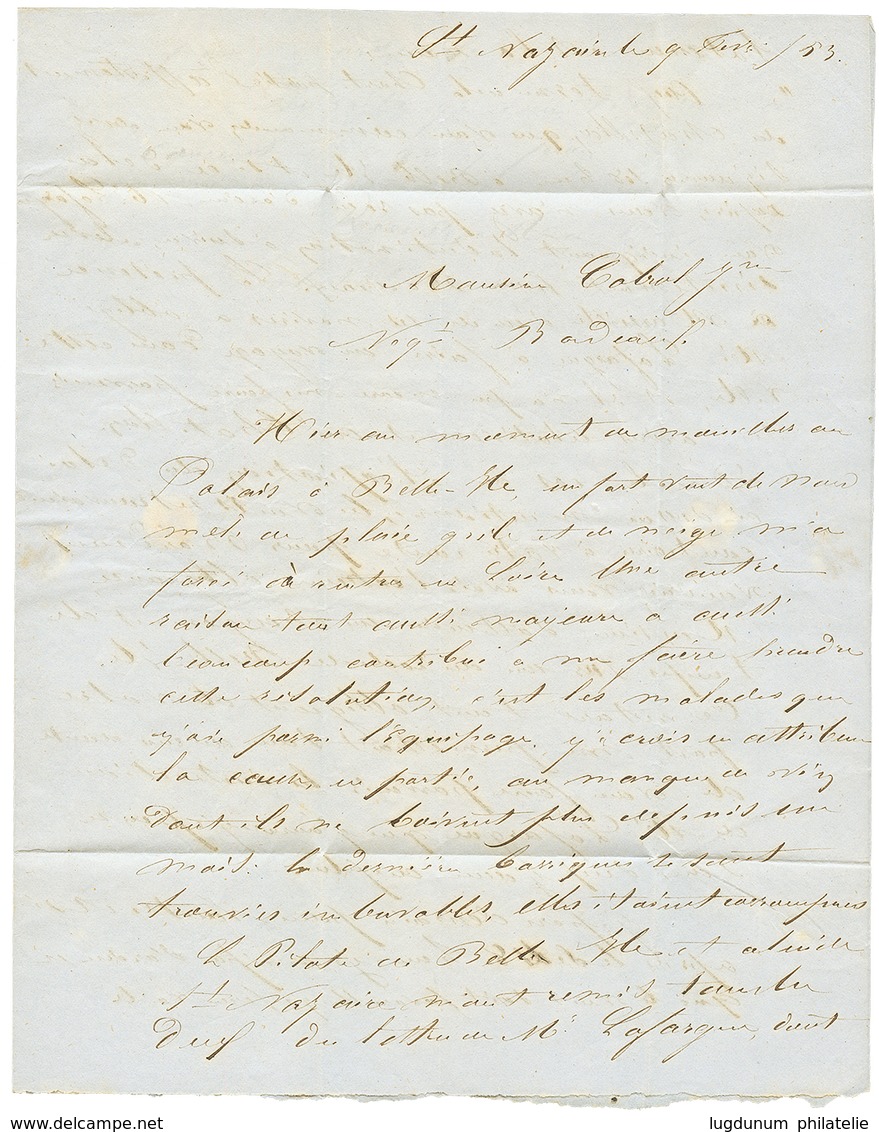 St Nazaire le 9 Fevr /53.
Monsieur Cabrol jne
Negt Bordeaux
Hier au moment de mouiller au
Palais à Belle-Ile, un fort vent de nord
melé de pluie grele et de neige m'a
forcé à rentrer en Loire Une autre
raison tout aussi majeure a aussi
beaucoup contribué à me faire prendre
cette résolution, c'est les malades que
j'ais parmi l'Equipage, j'y crois en attribuer
la cause, en partie, au manque de vin
dont ils ne boivent plus depuis un
mois: les dernières barriques se sont
trouvées imbuvables, elles étaient corrompues
Le Pilote de Belle Ile et celui de
St Nazaire m'ont remis tous les
deux des lettres de Mr Lafargue, dont
www.delcampe.net
lugdunum philatelie